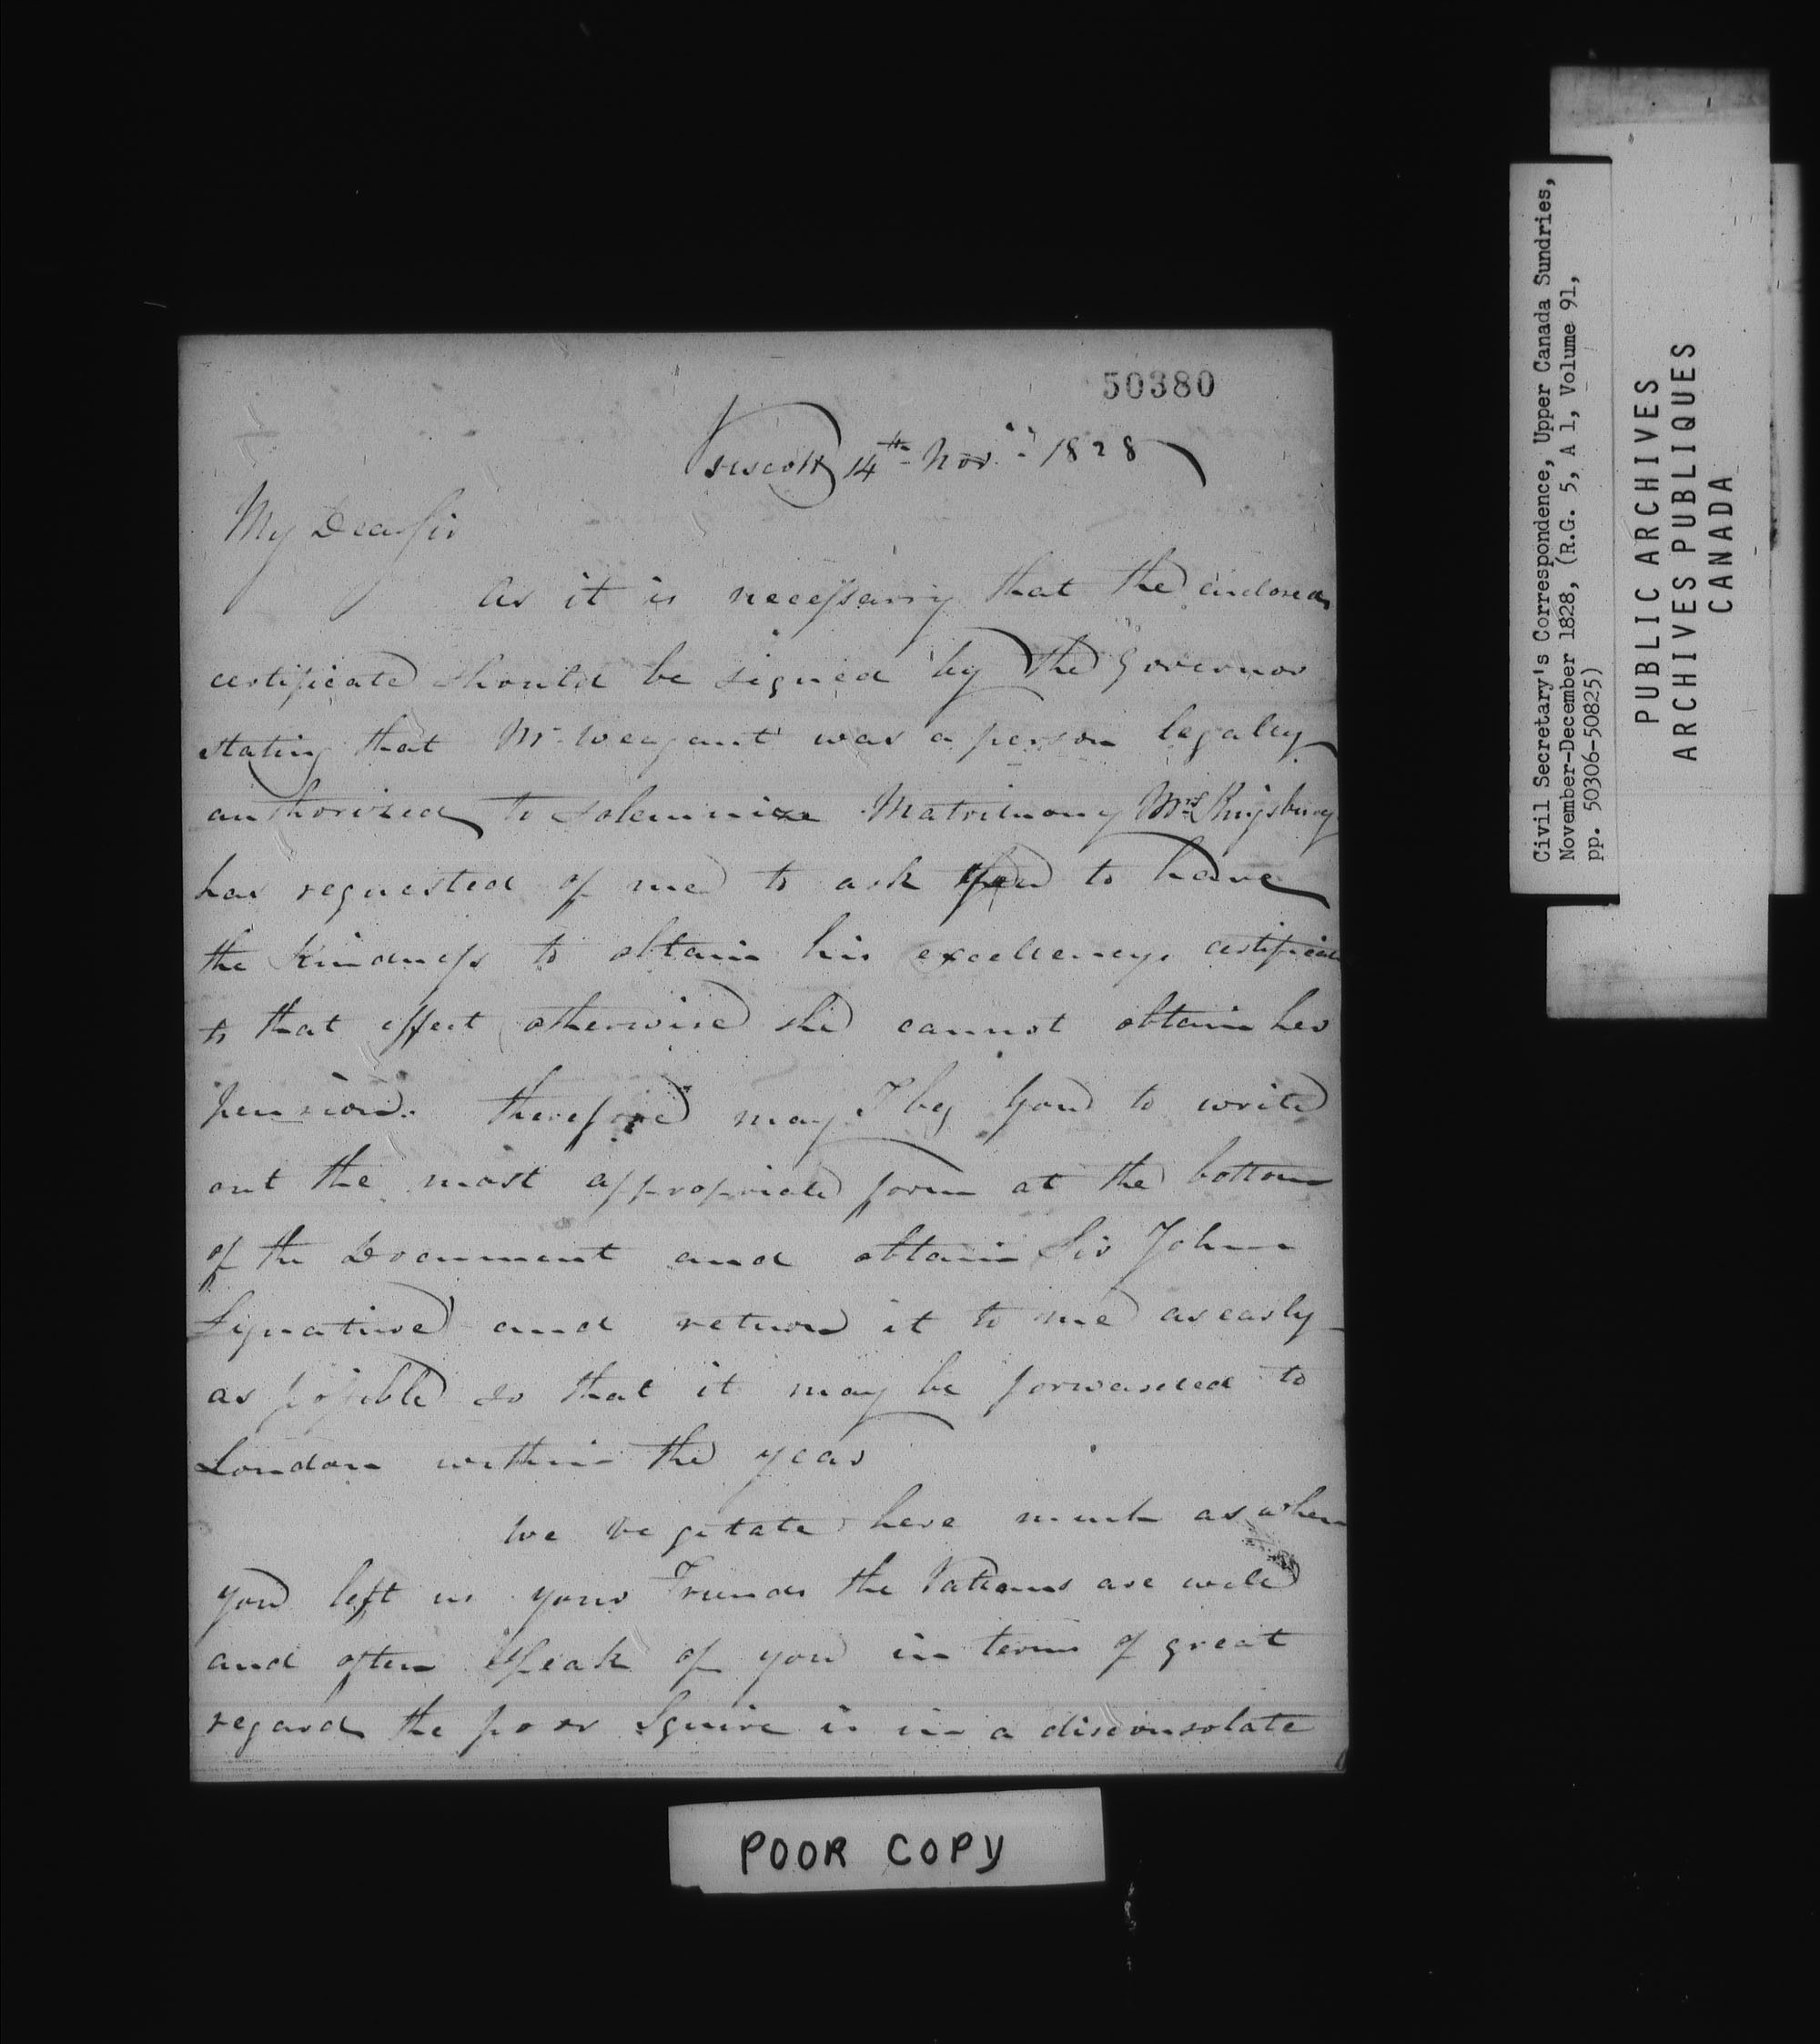 50380
Prescott 14th Novr 1828
My Dear Sir
As it is necessarry that the enclosed
certificate should be signed by the Governor
stating that Mr Weagant was a person legally
authorized to solemnize Matrimony Mrs Kingsbury
has requested of me to ask you to have
the kindness to obtain his excellencys certificate
to that effect otherwise she cannot obtain her
pension. therefore may I beg you to write
out the most appropriate form at the bottom
of the Document and obtain Sir John
Signature and return it to me as early
as possible so that it may be forwarded to
London within the year
We vegetate here much as when
you left us your Friends the are well
and often speak of you in terms of great
regard the poor Squire is in a disconsolate
POOR COPY
Civil Secretary's Correspondence, Upper Canada Sundries,
November-December 1828, (R.G. 5, A 1, Volume 91,
pp. 50306-50825)
PUBLIC ARCHIVES
ARCHIVES PUBLIQUES
CANADA